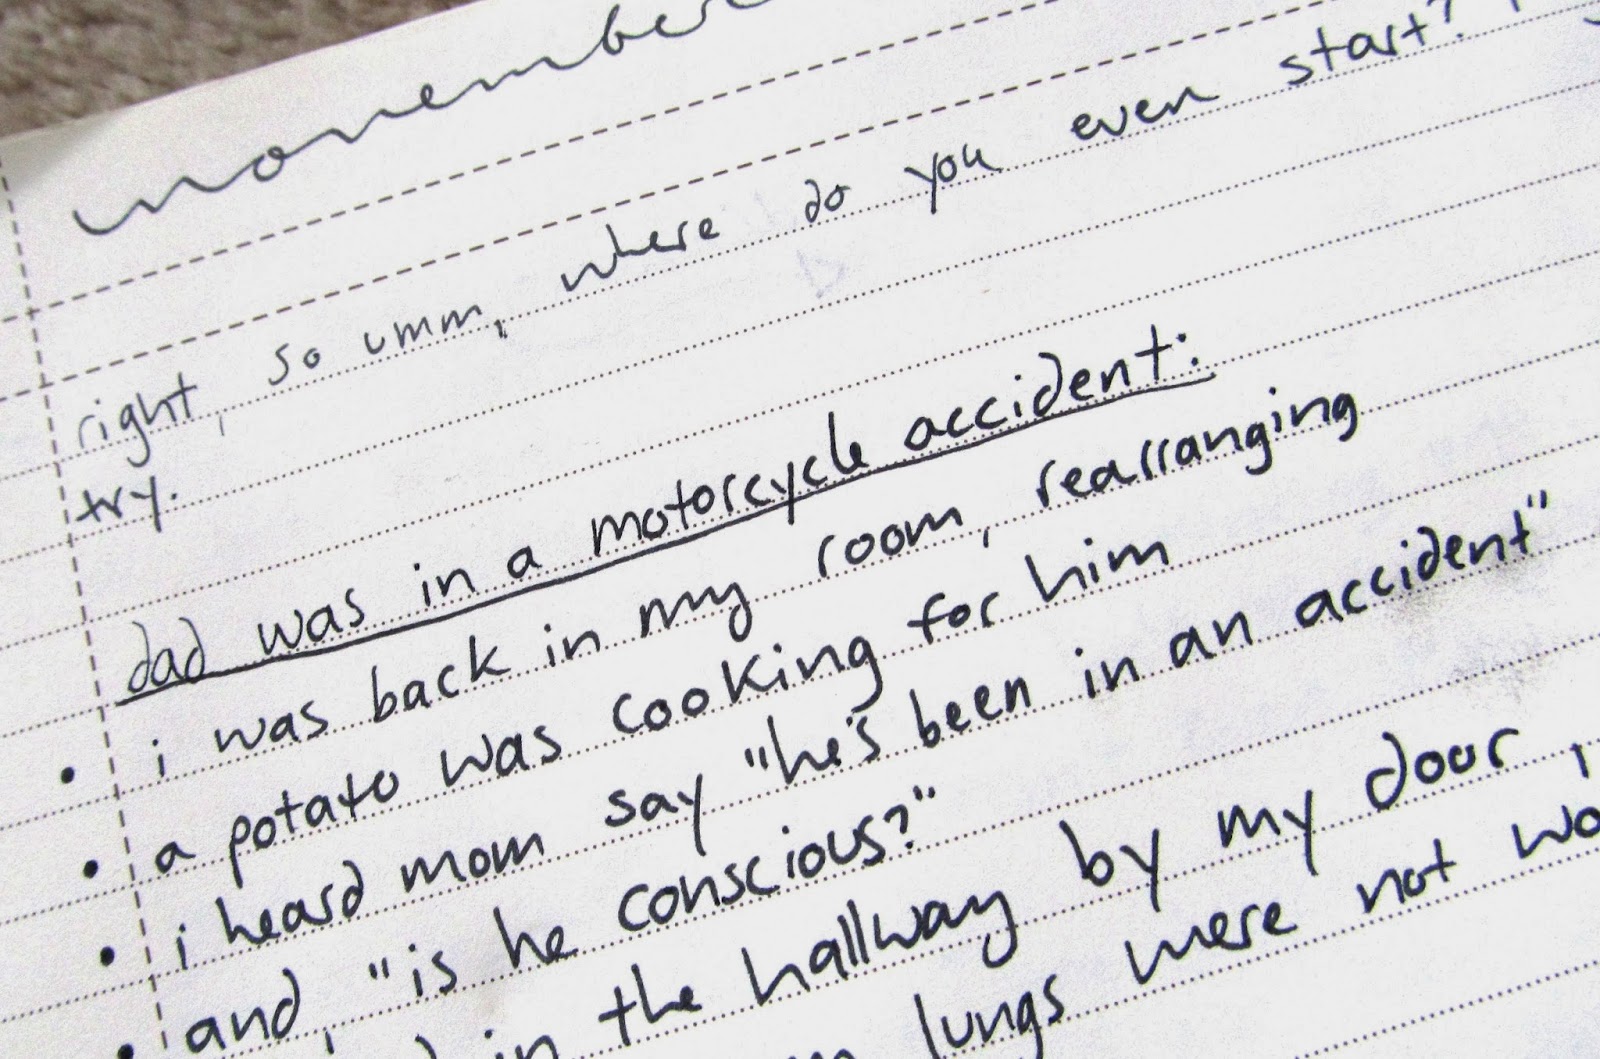 november
right, so umm, where do you even start?
try.
dad was in a motorcycle accident:
• i was back in my room, rearranging
• a potato was cooking for him
• i heard mom say "he's been in an accident"
• and, "is he conscious?"
in the hallway by my door,
lungs were not